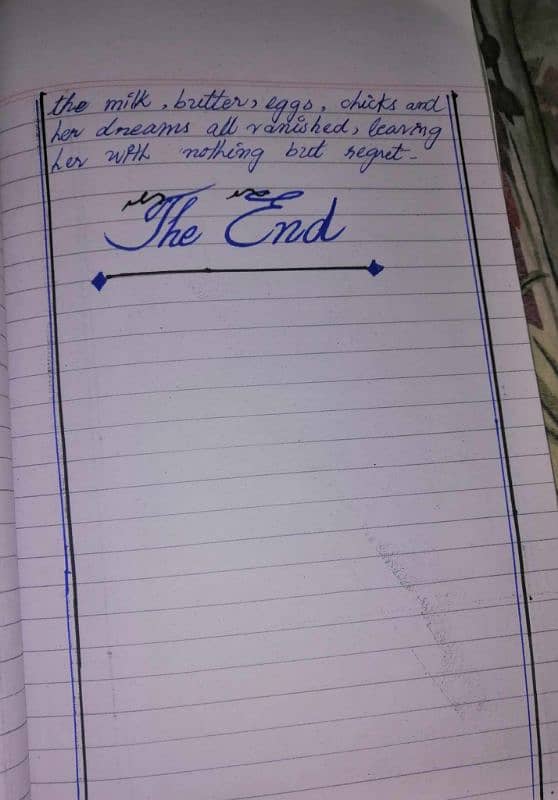 the milk, butter, eggs, chicks and
her dreams all vanished, leaving
her with nothing but regret.
The End